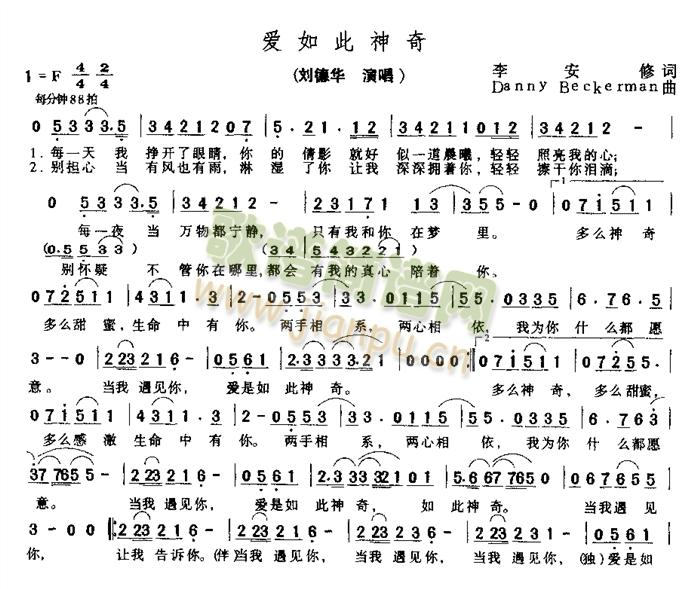 爱如此神奇
1=F 4/4 2/4 (刘德华 演唱) 李安修词
每分钟88拍 Danny Beckerman曲
0 5333.5 | 3421207 | 5.21.12 | 3421 1012 | 34212·
1.每一天 我 挣开了眼睛,你 的 倩影 就好 似一道晨曦,轻轻 照亮我的心;
2.别担心 当 有风也有雨,淋 湿 了你 让我 深深拥着你,轻轻 擦干你泪滴;
0 5333.5 | 34212- | 23171 13 | 355-0 | 071511
每一夜 当 万物都宁静, 只有我和你 在梦 里。 多么神奇
(0.5533) (34 543221)
别怀疑 不 管你在哪里,都会 有我的真心 陪着 你。
072511 | 4311.3 | 2-0553 | 33.0115 | 55.0335 | 6.76.5
多么甜 蜜,生命中 有 你。 两手相 系, 两心相 依, 我为你 什么都愿
3--0 | 223216- | 0561 | 2.3333.21 | 0000 | 071511 | 07255.
意。 当我 遇见你, 爱是如 此神奇。 多么神奇, 多么甜蜜,
071511 | 4311.3 | 2-0553 | 33.0115 | 55.0335 | 6.763
多么感 激 生命中 有 你。 两手相 系, 两心相 依, 我为你 什么都愿
377655- | 223216- | 0561 | 2.333321 | 5.667765 | 067655
意。 当我 遇见你, 爱是如 此神奇, 如 此神奇。 当我 遇见
3-00 | 223216- | 223216- | 223216- | 223216- | 0561
你, 让我 告诉你。(伴)当我 遇见你, 当我 遇见你, 当我 遇见你, (独)爱是如
歌谱简谱网
www.jianpu.cn